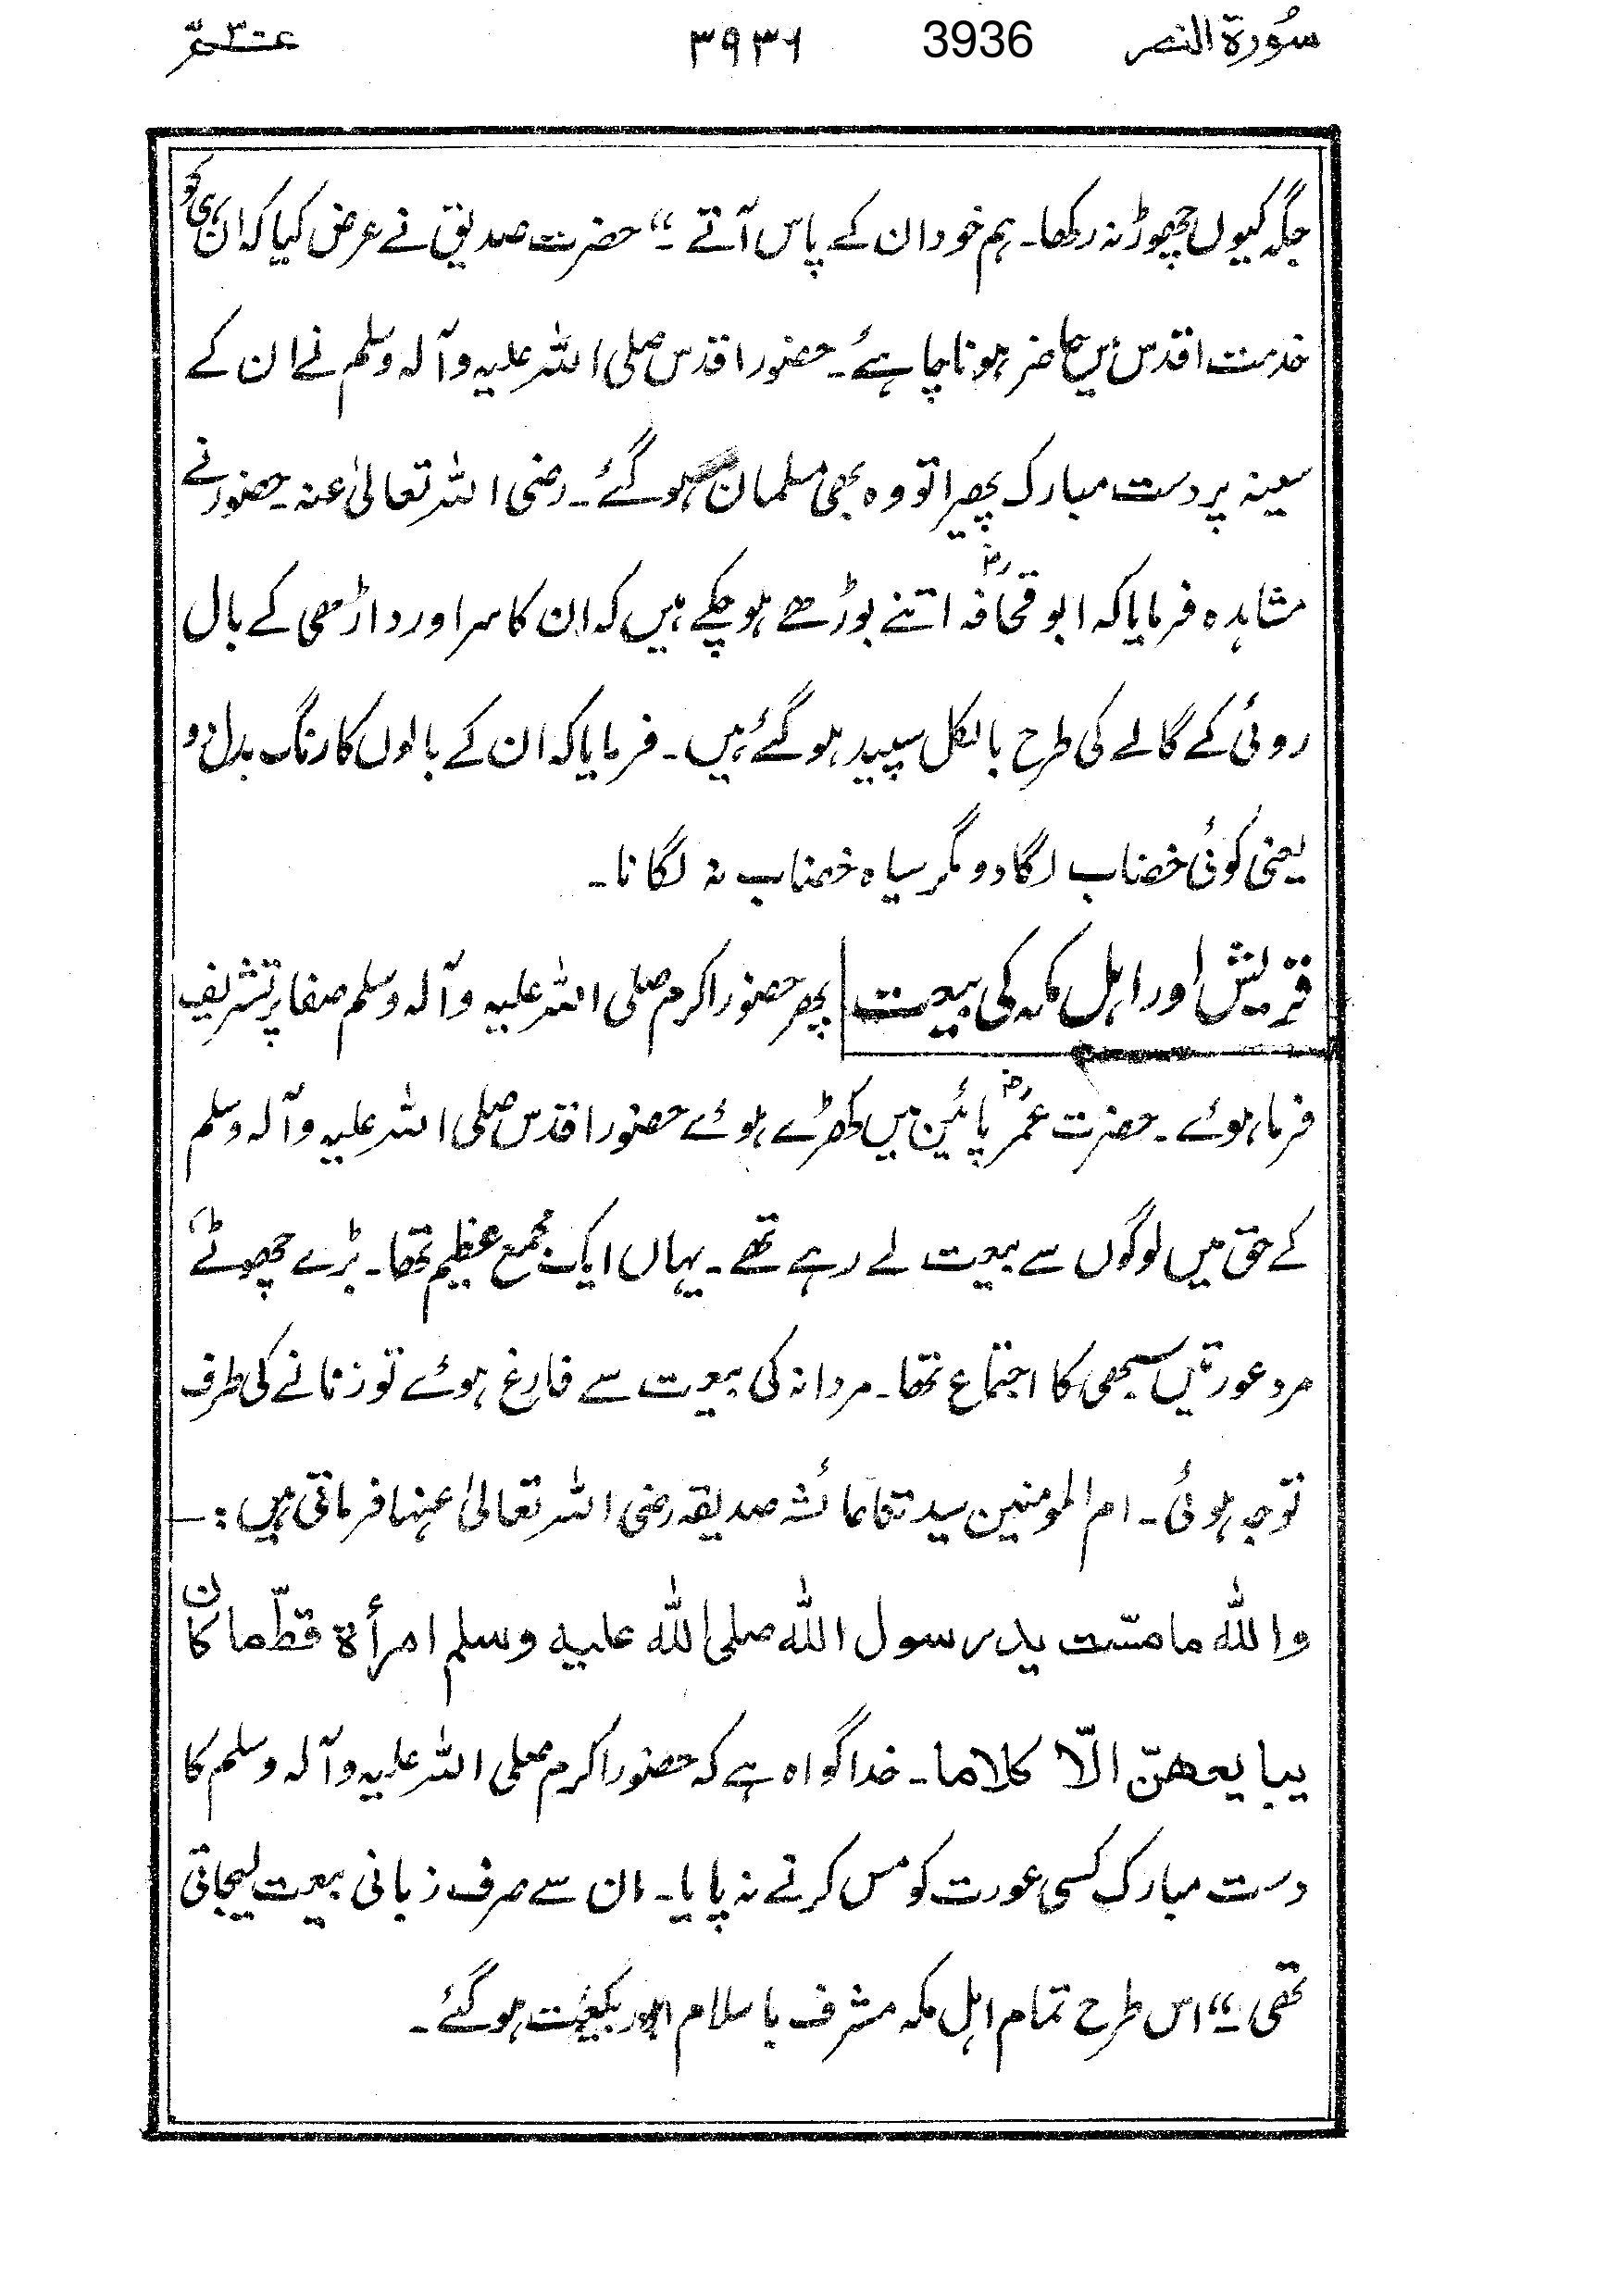 سُورۃ النصر 3936 ۳۹۳۶ عمّ ۳۰
جگہ کیوں چھوڑ نہ رکھا۔ ہم خود ان کے پاس آتے۔“ حضرت صدیق نے عرض کیا کہ ان ہی کو
خدمت اقدس میں حاضر ہونا چاہئے۔ حضور اقدس صلی اللہ علیہ وآلہ وسلم نے ان کے
سینہ پر دست مبارک پھیرا تو وہ بھی مسلمان ہوگئے۔ رضی اللہ تعالیٰ عنہ۔ حضور نے
مشاہدہ فرمایا کہ ابو قحافہؓ اتنے بوڑھے ہوچکے ہیں کہ ان کا سر اور داڑھی کے بال
روئی کے گالے کی طرح بالکل سپید ہوگئے ہیں۔ فرمایا کہ ان کے بالوں کا رنگ بدل دو
یعنی کوئی خضاب لگا دو مگر سیاہ خضاب نہ لگانا۔
قریش اور اہل مکہ کی بیعت پھر حضور اکرم صلی اللہ علیہ وآلہ وسلم صفا پر تشریف
فرما ہوئے۔ حضرت عمرؓ پائین میں کھڑے ہوئے حضور اقدس صلی اللہ علیہ وآلہ وسلم
کے حق میں لوگوں سے بیعت لے رہے تھے۔ یہاں ایک مجمع عظیم تھا۔ بڑے چھوٹے،
مرد عورتیں سبھی کا اجتماع تھا۔ مردانہ کی بیعت سے فارغ ہوئے تو زنانے کی طرف
توجہ ہوئی۔ ام المومنین سیدتنا عائشہ صدیقہ رضی اللہ تعالیٰ عنہا فرماتی ہیں:—
واللہ ما مسّت ید رسول اللہ صلی اللہ علیہ وسلم امرأة قطّ ما کان
یبایعھنّ الّا کلاما۔ خدا گواہ ہے کہ حضور اکرم صلی اللہ علیہ وآلہ وسلم کا
دست مبارک کسی عورت کو مس کرنے نہ پایا۔ ان سے صرف زبانی بیعت لیجاتی
تھی۔“ اس طرح تمام اہل مکہ مشرف باسلام اور بیعت ہوگئے۔